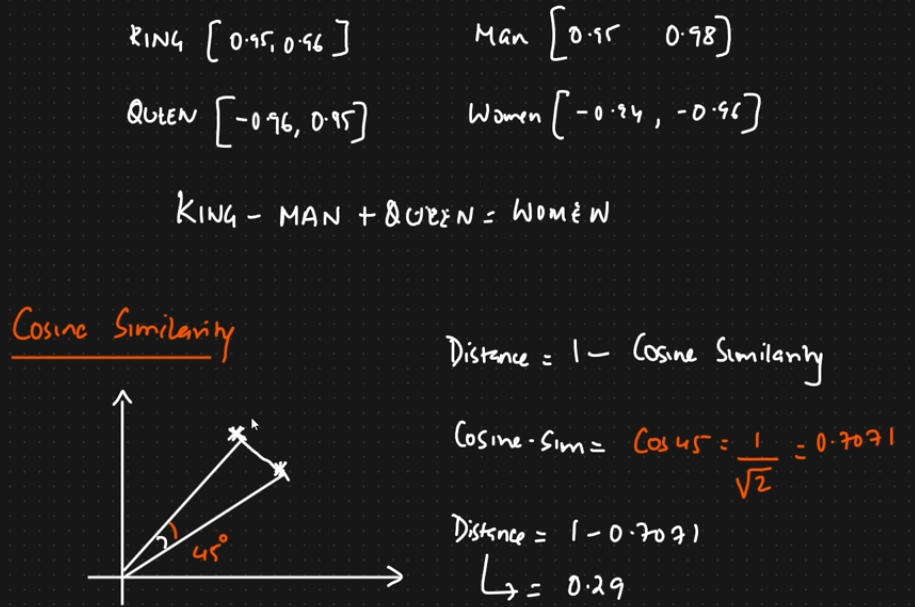 KING [0.95, 0.96]
Man [0.95 0.98]
QUEEN [-0.96, 0.95]
Women [-0.94, -0.96]
KING - MAN + QUEEN = WOMEN
Cosine Similarity
Distance = 1 - Cosine Similarity
Cosine-Sim = Cos 45 = 1/√2 = 0.7071
45°
Distance = 1 - 0.7071
= 0.29